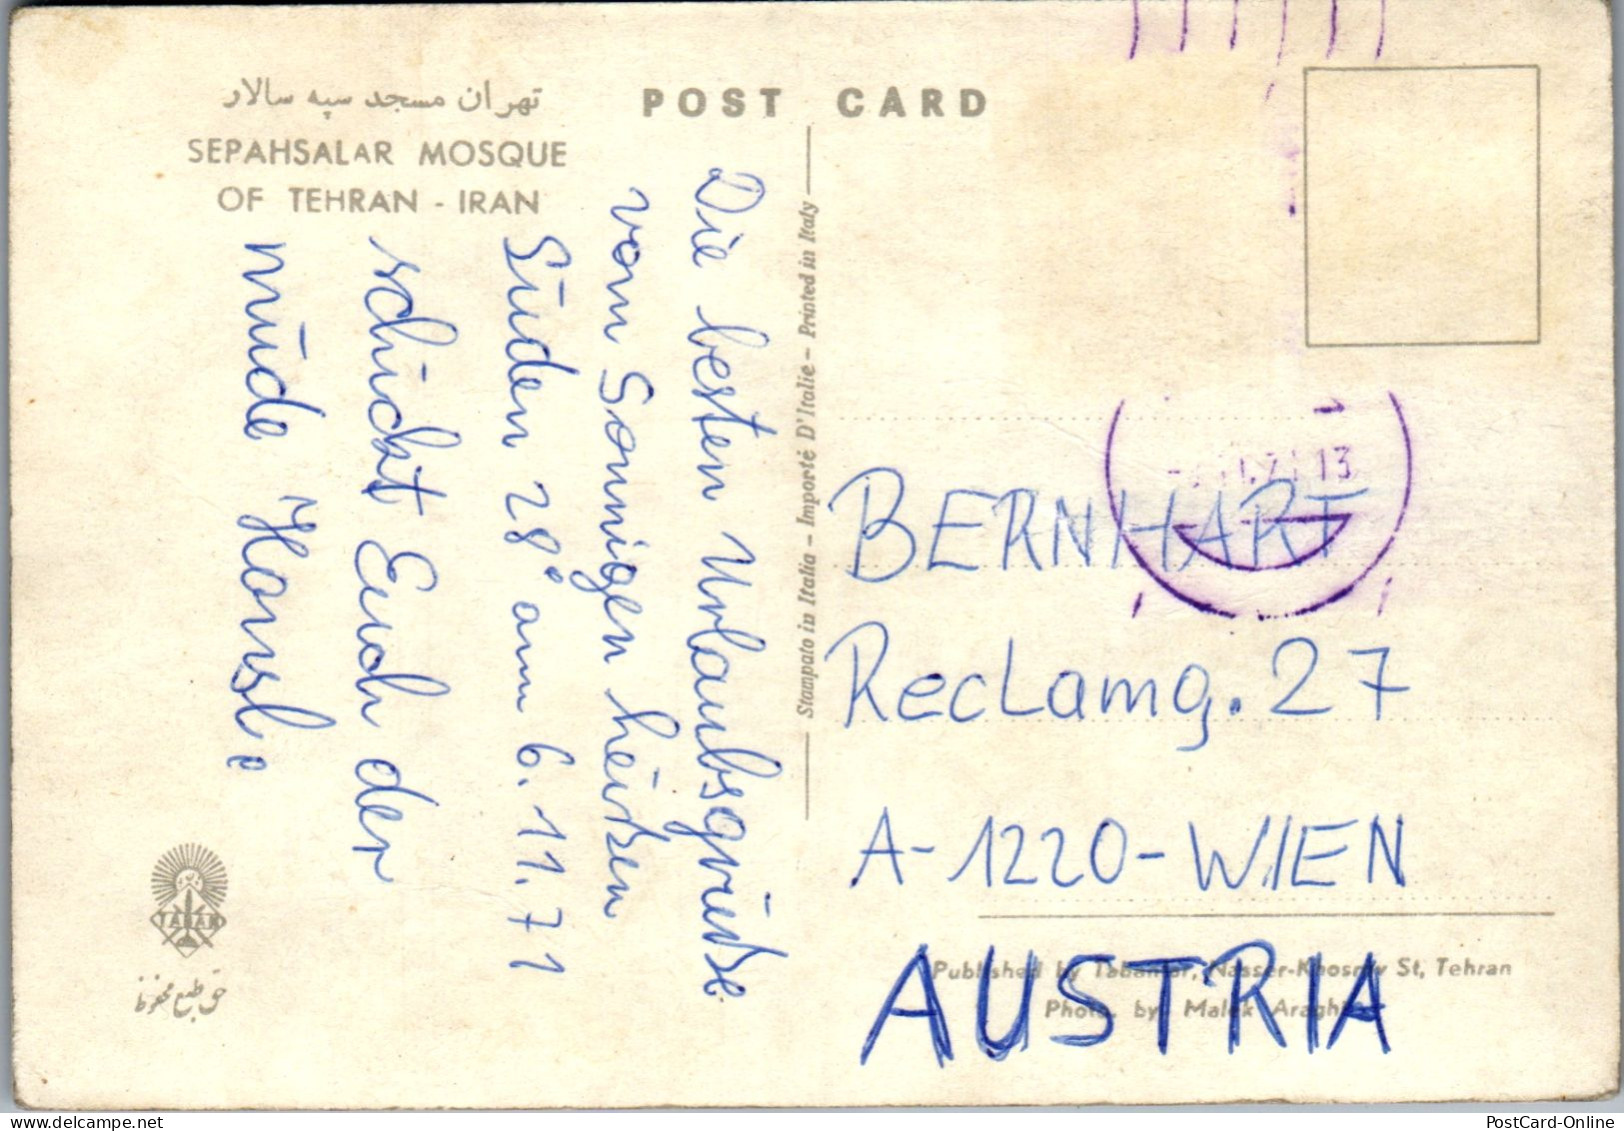 تهران مسجد سپه سالار
SEPAHSALAR MOSQUE
OF TEHRAN - IRAN
POST CARD
Die besten Urlaubsgrüße
vom Sonnigen heißen
Süden 28° am 6.11.71
schickt Euch der
müde Hansl.
Stampato in Italia - Importé D'Italie - Printed in Italy
13
BERNHART
Reclamg. 27
A-1220-WIEN
AUSTRIA
Published by Tabanfar, Nasser-Khosrow St, Tehran
Photo. by: Malek Araghi
TABAN
حق طبع محفوظ
PostCard-Online